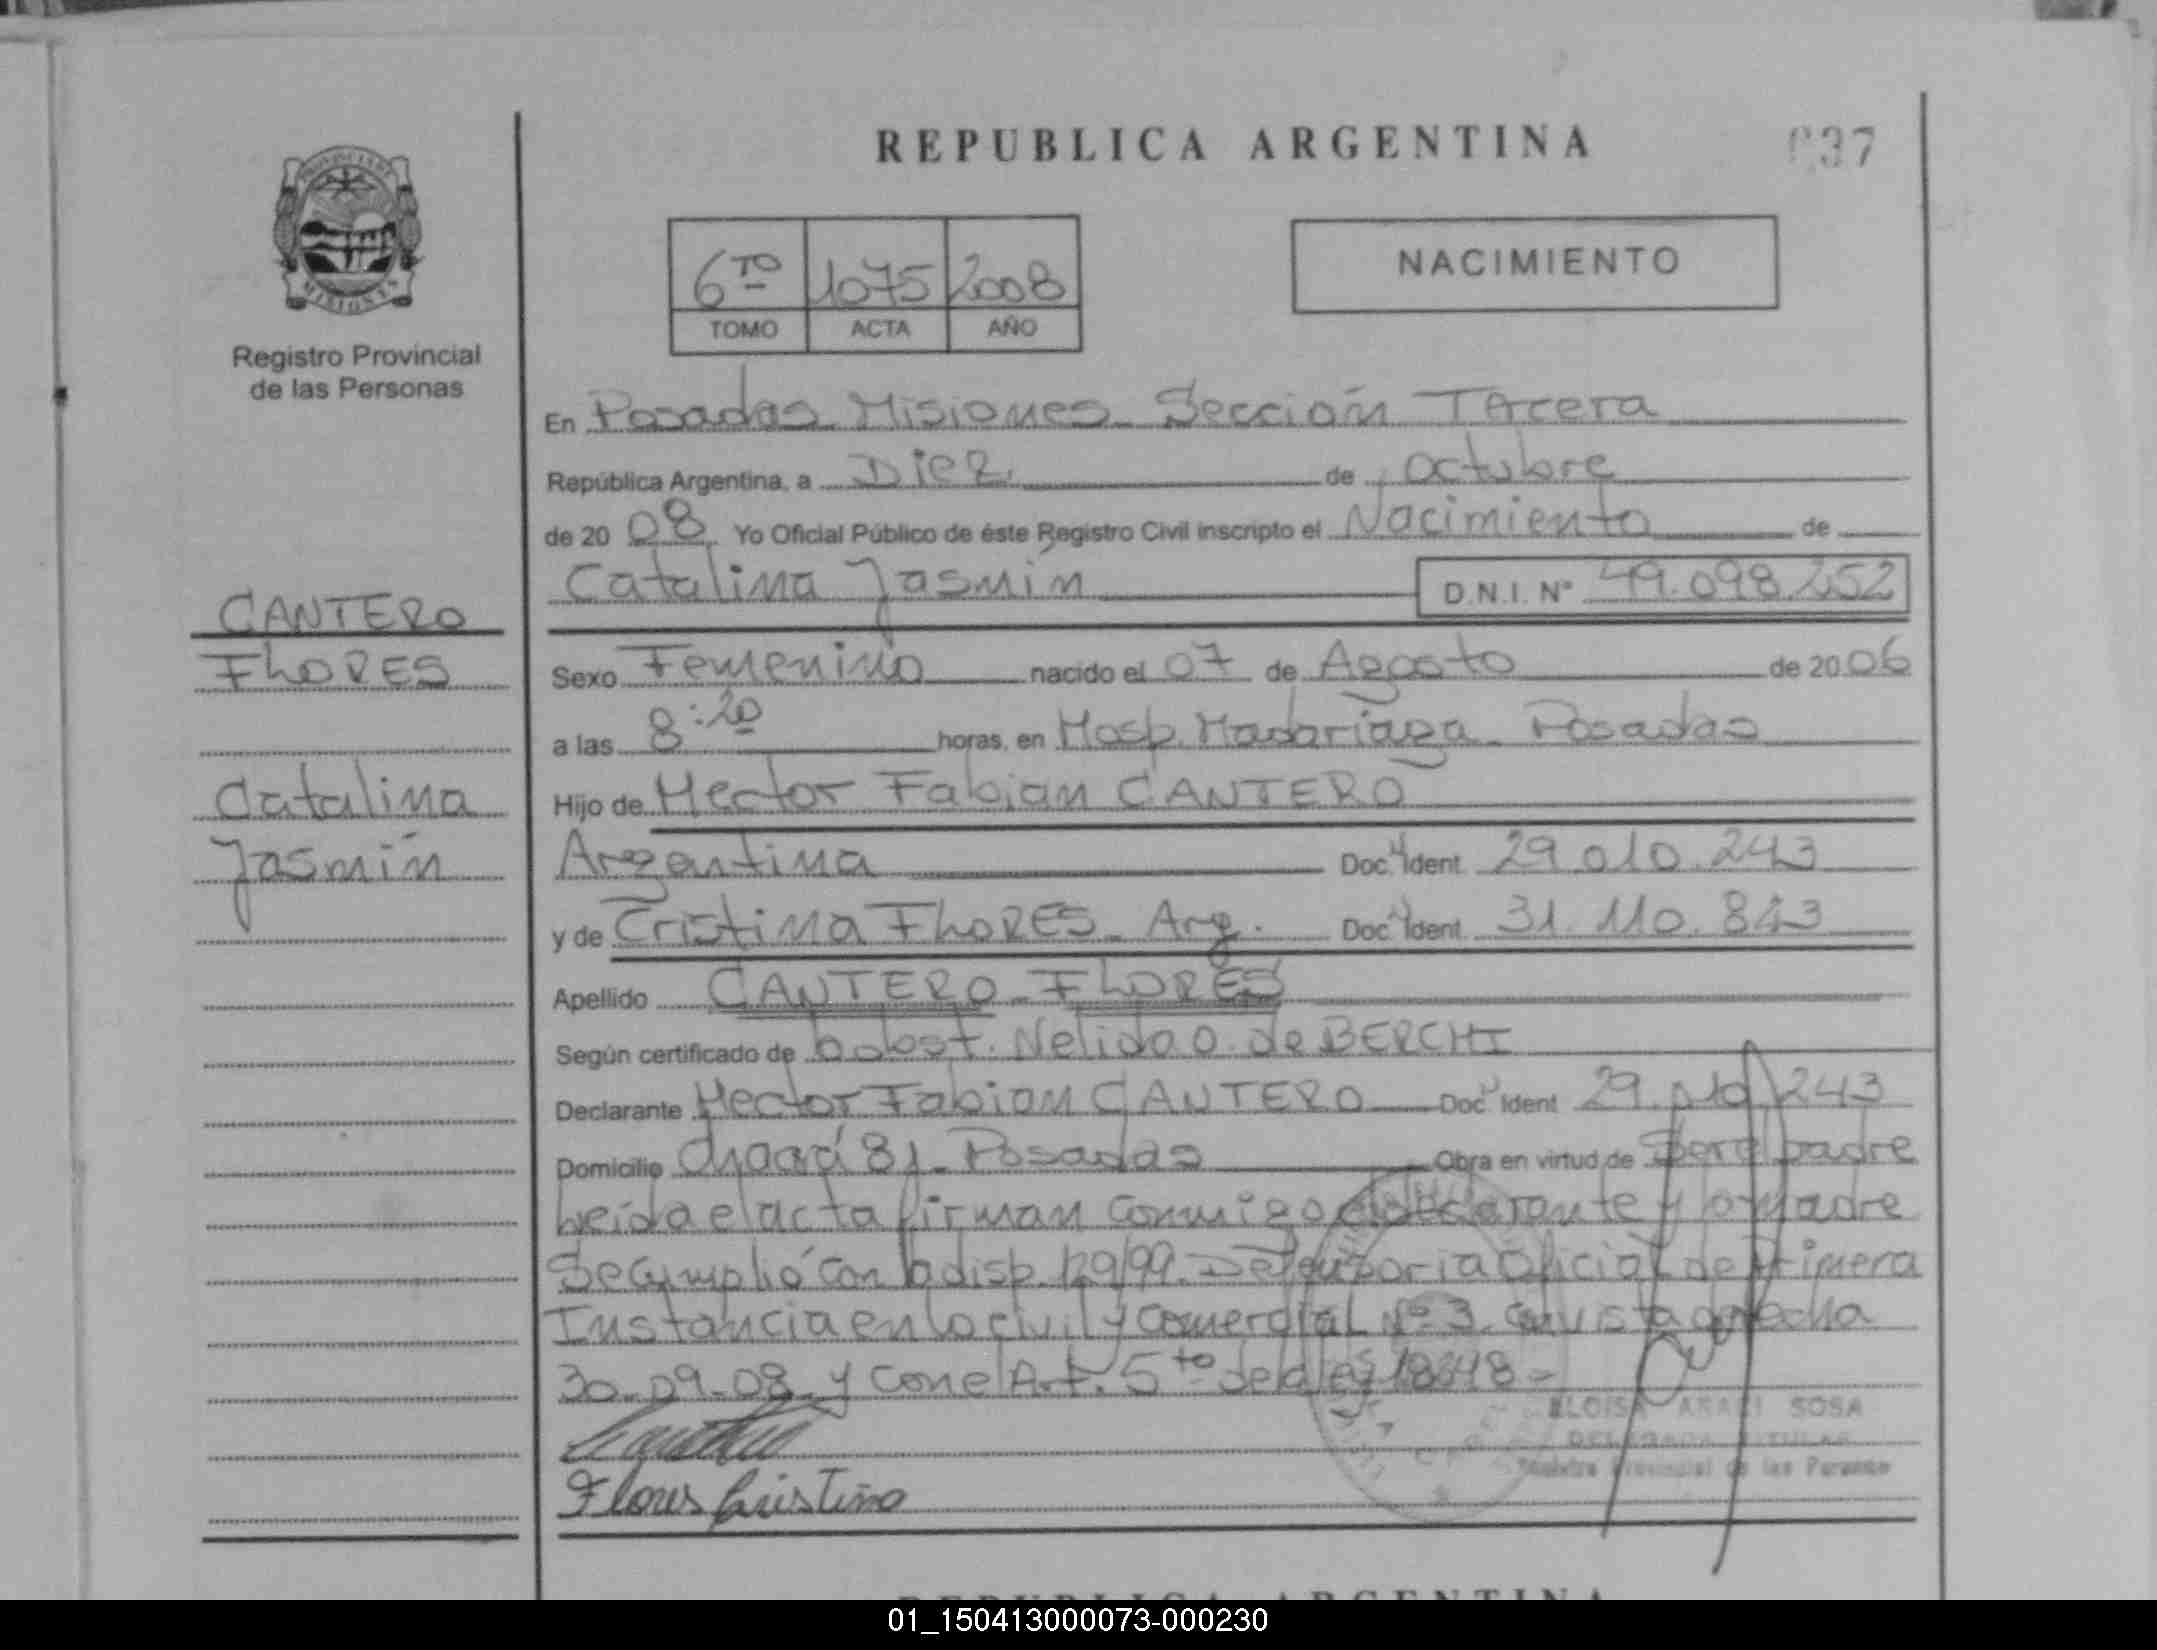 REPUBLICA ARGENTINA
037
PROVINCIA DE
MISIONES
Registro Provincial
de las Personas
6TO 1075 2008
TOMO ACTA AÑO
NACIMIENTO
En Posadas Misiones Sección Tercera
República Argentina, a Diez de octubre
de 20 08 Yo Oficial Público de éste Registro Civil inscripto el Nacimiento de
Catalina Jasmín D.N.I. Nº 49.098.252
CANTERO
FLORES
Catalina
Jasmín
Sexo Femenino nacido el 07 de Agosto de 20 06
a las 8:20 horas, en Hosp. Madariaga Posadas
Hijo de Hector Fabian CANTERO
Argentina Doc. Ident. 29.010.243
y de Cristina FLORES - Arg. Doc. Ident. 31.110.843
Apellido CANTERO - FLORES
Según certificado de la obst. Nelida O. de BERCHI
Declarante Hector Fabian CANTERO Doc. Ident 29.010.243
Domicilio Chacra 81 - Posadas Obra en virtud de Ser el padre
Leída el acta firman conmigo el declarante y la madre
Se cumplió con la disp. 129/99. Defensoria Oficial de Primera
Instancia en lo civil y comercial Nº 3. con vista de fecha
30-09-08 y con el Art. 5to de la ley 18248-
Flores Cristina
ELOISA ARACI SOSA
DELEGADA TITULAR
Registro Provincial de las Personas
REPUBLICA ARGENTINA
01_150413000073-000230